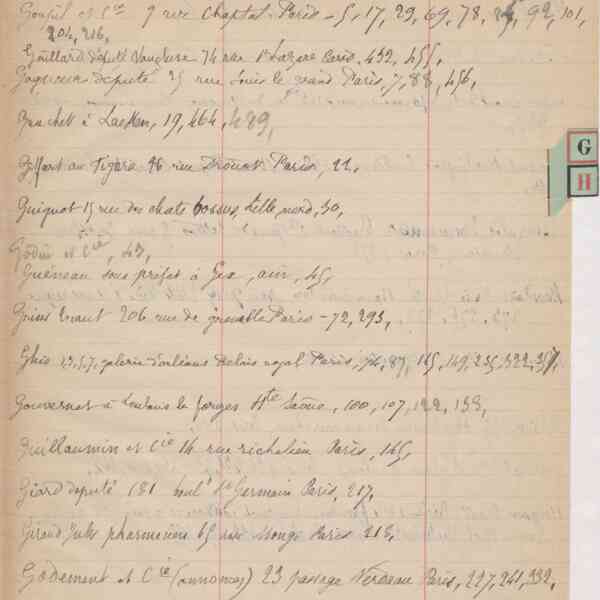 Goupil et Cie 9 rue Chaptal Paris - 5, 17, 29, 69, 78, 92, 101,
204, 216,
Goullard député Vaucluse 74 rue St Lazare Paris, 432, 455,
député 25 rue Louis le grand Paris, 7, 88, 456,
à Laeken, 19, 464, 489,
Giffart au Figaro 26 rue Drouot Paris, 22,
Guignot 15 rue des chats bossus, Lille, nord, 30,
Godin et Cie, 43,
Guéneau sous préfet à Gex, ain, 45,
206 rue de grenelle Paris - 72, 293,
Ghio 1, 3, 5, 7, galerie d'orléans Palais royal Paris, 74, 87, 115, 149, 235, 322, 357,
Gouvernot à Loulans les forges Hte Saône, 100, 107, 122, 138,
Guillaumin et Cie 14 rue richelieu Paris, 145,
Giard député 181 bould St Germain Paris, 217,
Giraud Jules pharmacien 65 rue Monge Paris 218,
Godement et Cie (annonces) 23 passage Verdeau Paris, 227, 241, 332,
G
H